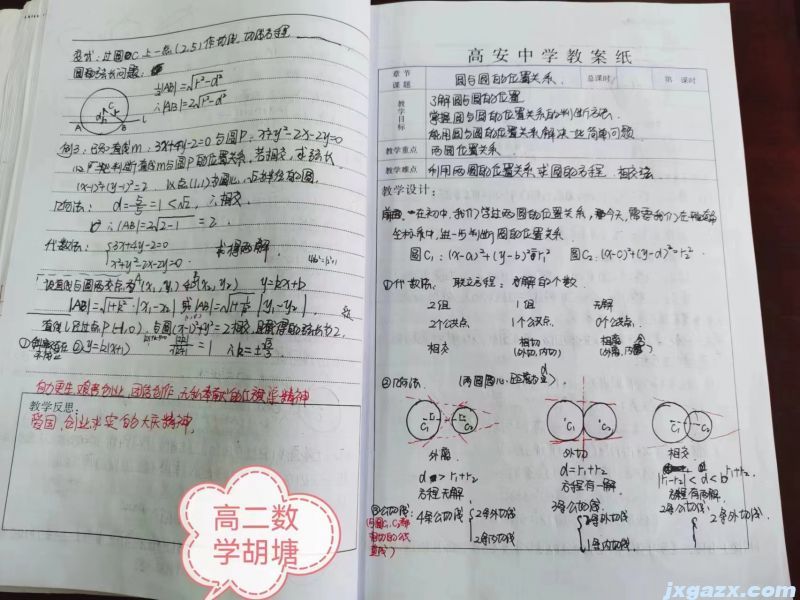 变式:过圆C上一点(2,5)作切线,切线方程
圆的弦长问题:
½|AB|=√r²-d²
∴|AB|=2√r²-d²
A B L
例3.已知直线m:3x+4y-2=0与圆P:x²+y²-2x-2y=0
判断直线m与圆P的位置关系,若相交,求弦长
(x-1)²+(y-1)²=2 以点(1,1)为圆心,√2为半径的圆
几何法: d=5/5=1<√2 ∴相交
∴|AB|=2√2-1=2
代数法: {3x+4y-2=0 求得两解
x²+y²-2x-2y=0
设直线与圆两交点为(x₁,y₁)(x₂,y₂) y=kx+b
|AB|=√1+k²·|x₁-x₂| 或|AB|=√1+1/k²|y₁-y₂|
直线l过点P(-1,0),与圆(x-1)²+y²=2相交,且截得的弦长为2.
②y=k(x+1) =1 ∴k=±√3/3
自力更生 艰苦创业 团结合作 无私奉献的红旗渠精神
教学反思:
爱国,创业求实的大庆精神,
高二数
学胡塘
高安中学教案纸
章节
课题
圆与圆的位置关系.
总课时
第 课时
教学目标
了解圆与圆的位置
掌握圆与圆的位置关系的判断方法
能用圆与圆的位置关系解决一些简单问题
教学重点 两圆位置关系
教学难点 利用两圆的位置关系求圆的方程.相交弦
教学设计:
在初中,我们学过两圆的位置关系,今天,需要我们在平面直角
坐标系中,进一步判断圆的位置关系.
圆C₁:(x-a)²+(y-b)²=r₁² 圆C₂:(x-c)²+(y-d)²=r₂²
①代数法: 联立方程:方程解的个数
2组 1组 无解
2个公共点 1个公共点. 0个公共点.
相交 相切 相离
(外切,内切) (外离,内含)
②几何法. (两圆圆心距离为d)
C₁ C₂ C₁ C₂ C₁ C₂
外离 外切 相交
d>r₁+r₂ d=r₁+r₂ |r₁-r₂|<d<r₁+r₂
方程无解 方程有一解. 方程有两解.
③公切线: 4条公切线 {2条外切线 3条公切线 {2条外切线 2条公切线 {2条外切线.
(与圆C₁,C₂都
相切的公共
直线)
2条内切线 1条内切线
jxgazx.com